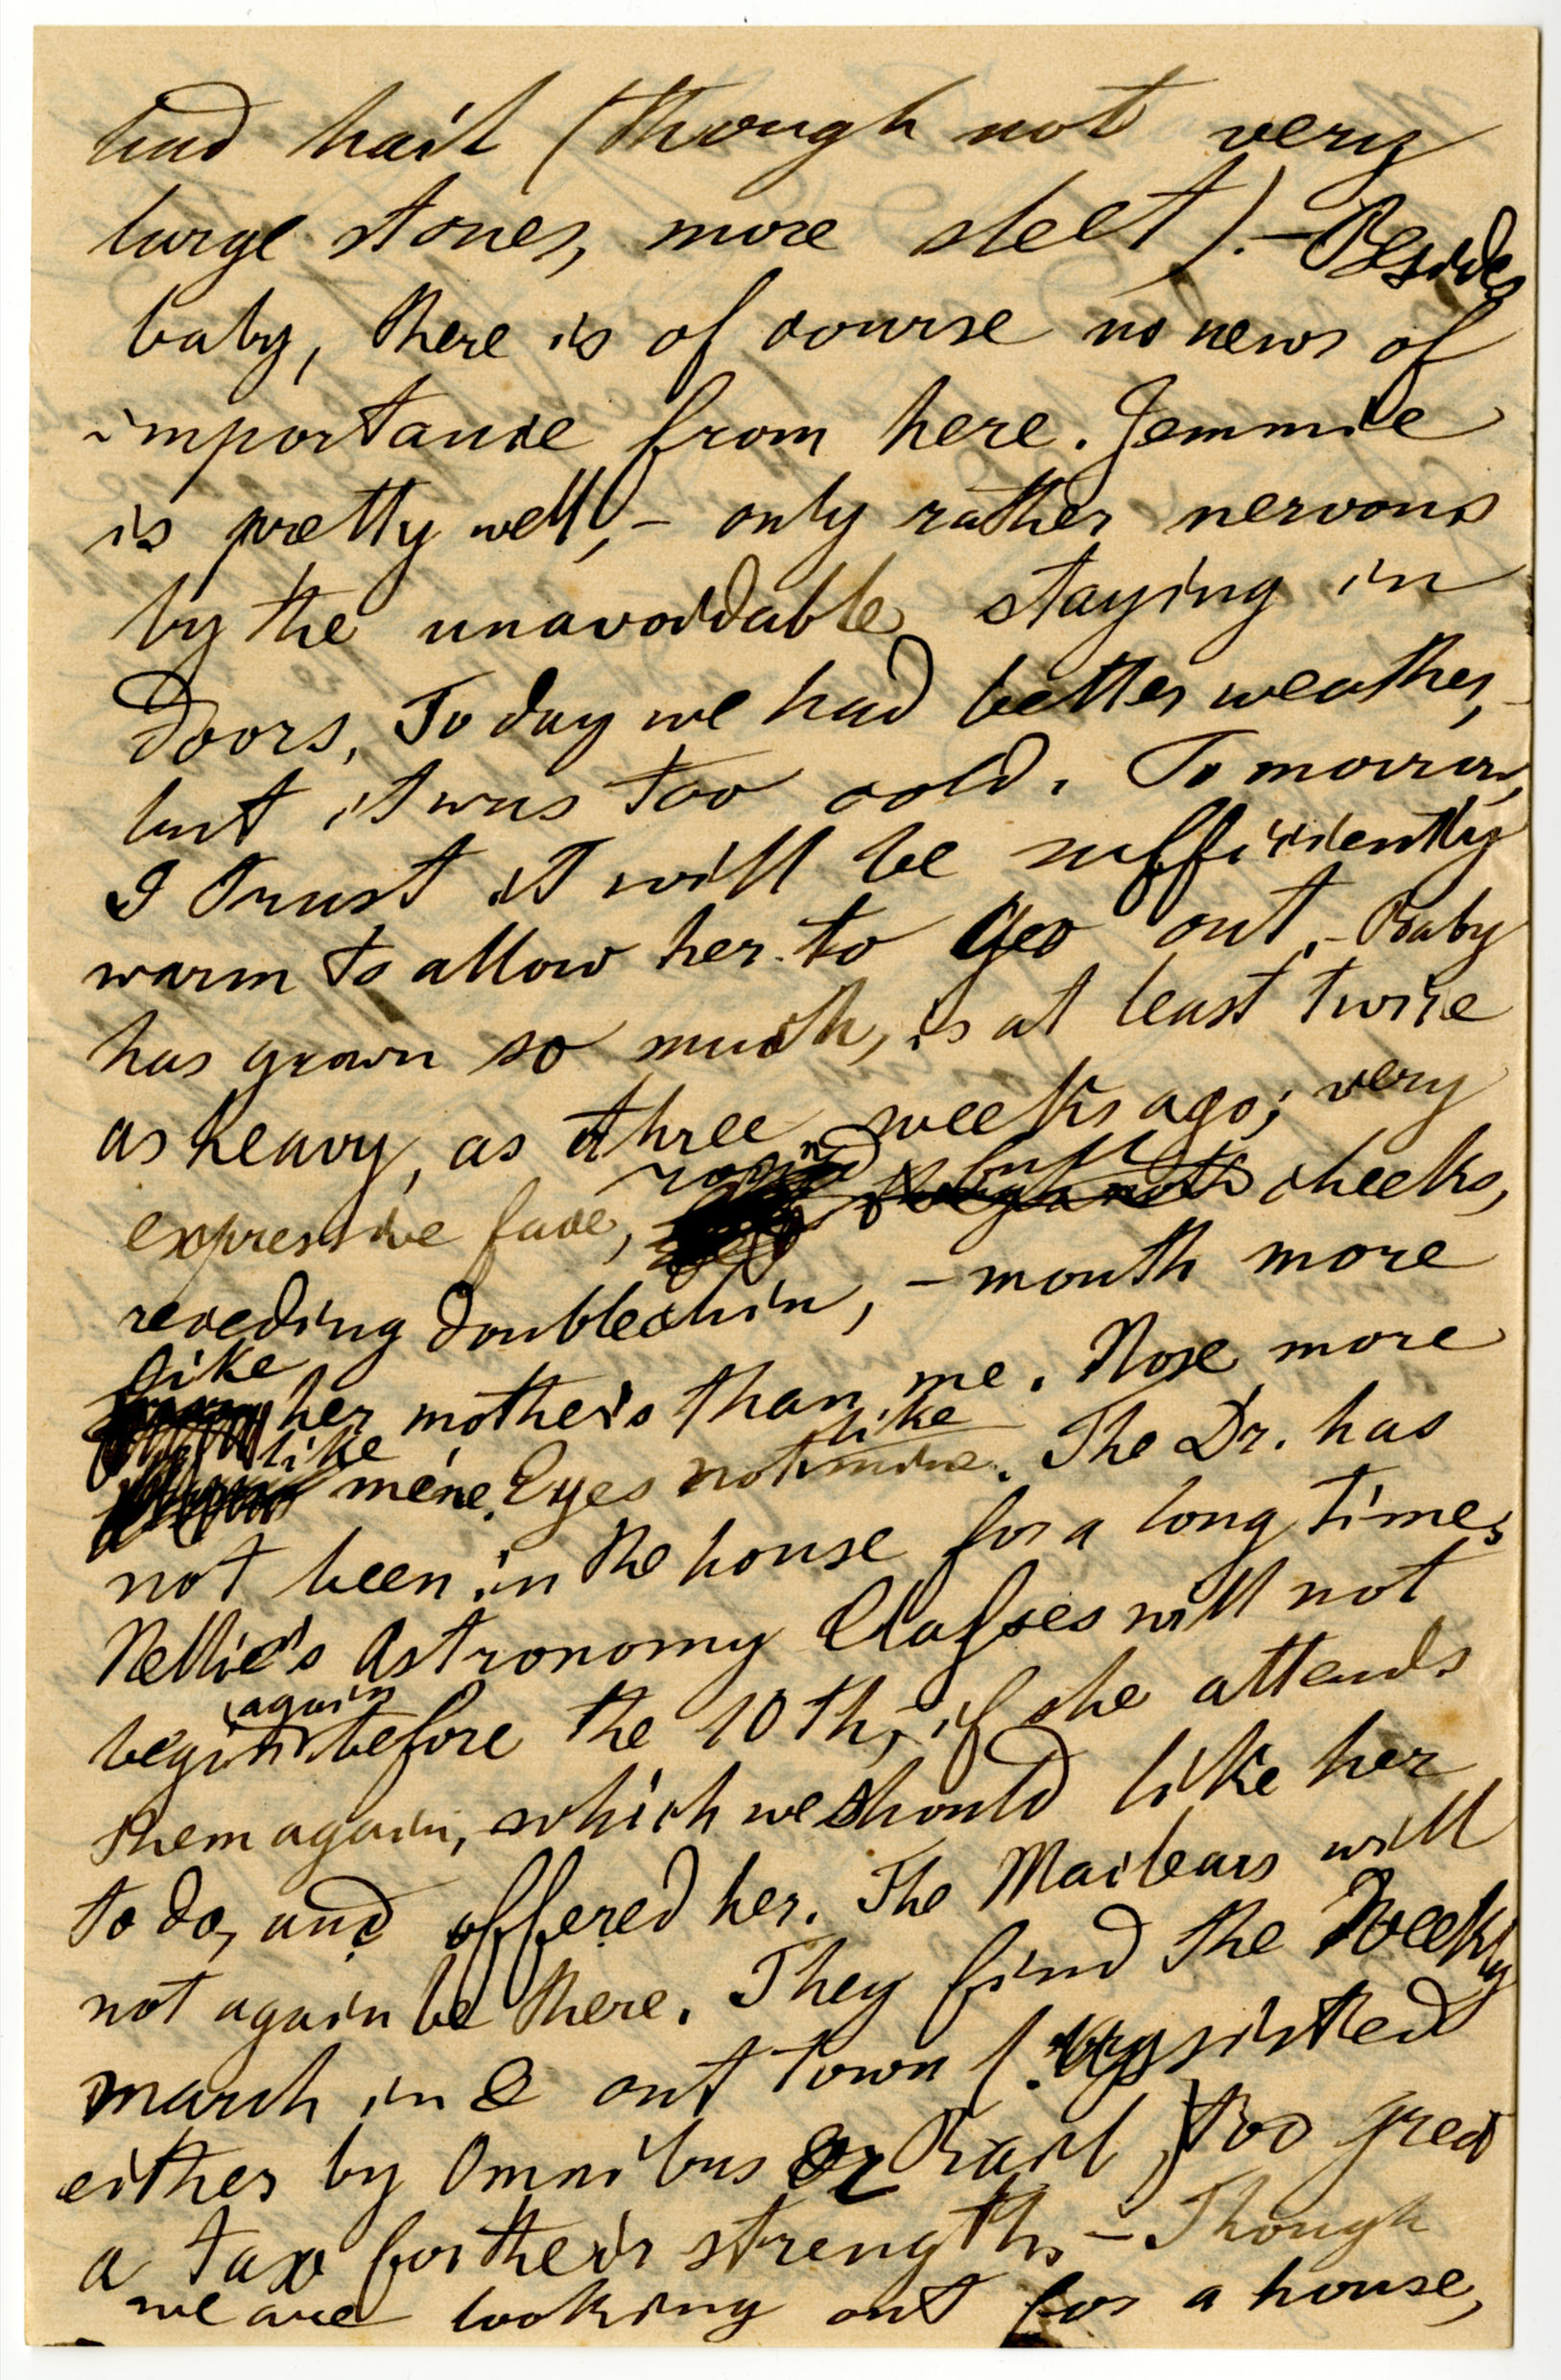 had hail (though not very
large stones, more sleet).— Besides
baby, there is of course no news of
importance from here. Jemmie
is pretty well,— only rather nervous
by the unavoidable staying in
doors. To day we had better weather,—
but it was too cold. To morrow,
I trust it will be sufficiently
warm to allow her to go out.— Baby
has grown so much, is at least twice
as heavy, as three weeks ago; very
expressive face, full cheeks,
receding doublechin,— mouth more
like her mother's than me. Nose more
like mine. Eyes not like mine. The Dr. has
not been in the house for a long time.
Nellie's Astronomy Classes will not
begin again before the 10th,— if she attends
them again, which we should like her
to do, and offered her. The will
not again be there. They find the Weekly
march in & out town (assisted
either by Omnibus or Rail) too great
a tax for their strength.— Though
we are looking out for a house,